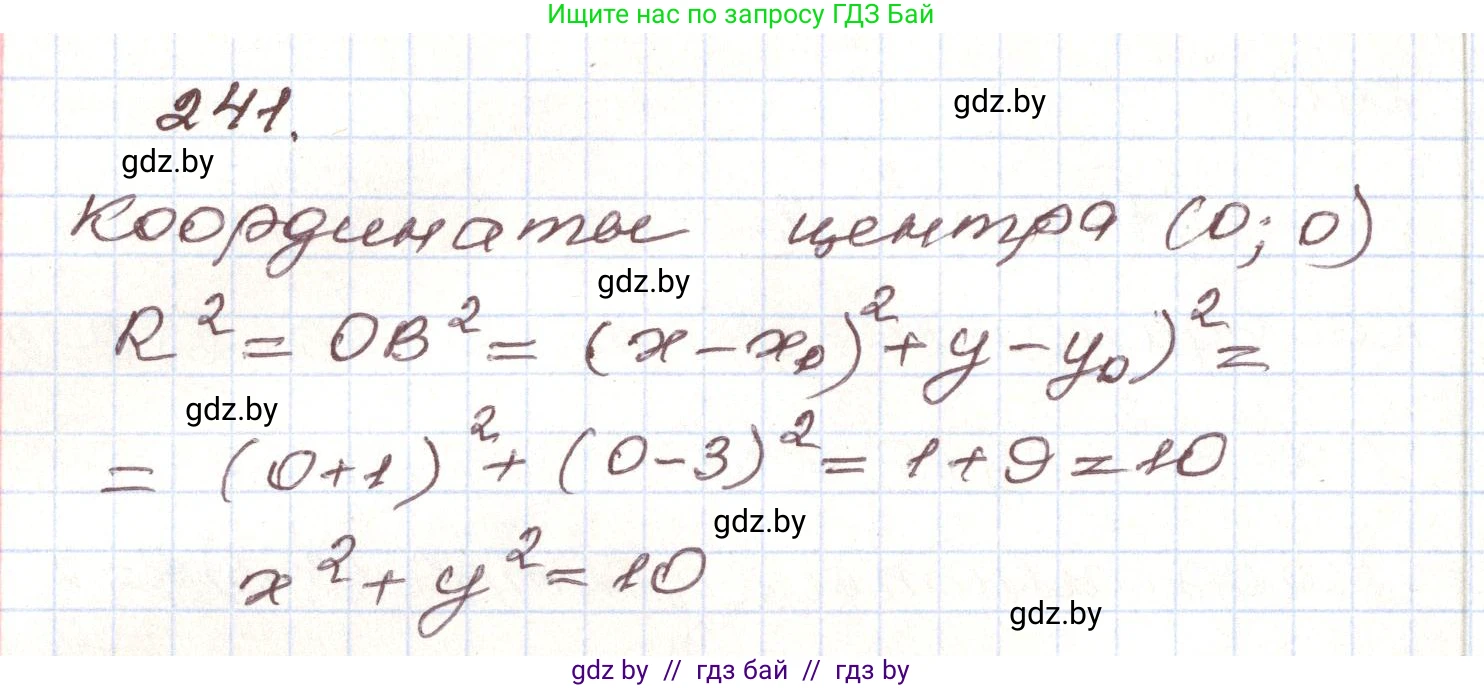 Ищите нас по запросу ГДЗ Бай
241.
gdz.by
gdz.by
Координаты центра (0; 0)
gdz.by
R² = OB² = (x - x₀)² + y - y₀)² =
gdz.by
= (0+1)² + (0-3)² = 1+9=10
gdz.by
x² + y² = 10
gdz.by
gdz by // гдз бай // гдз by